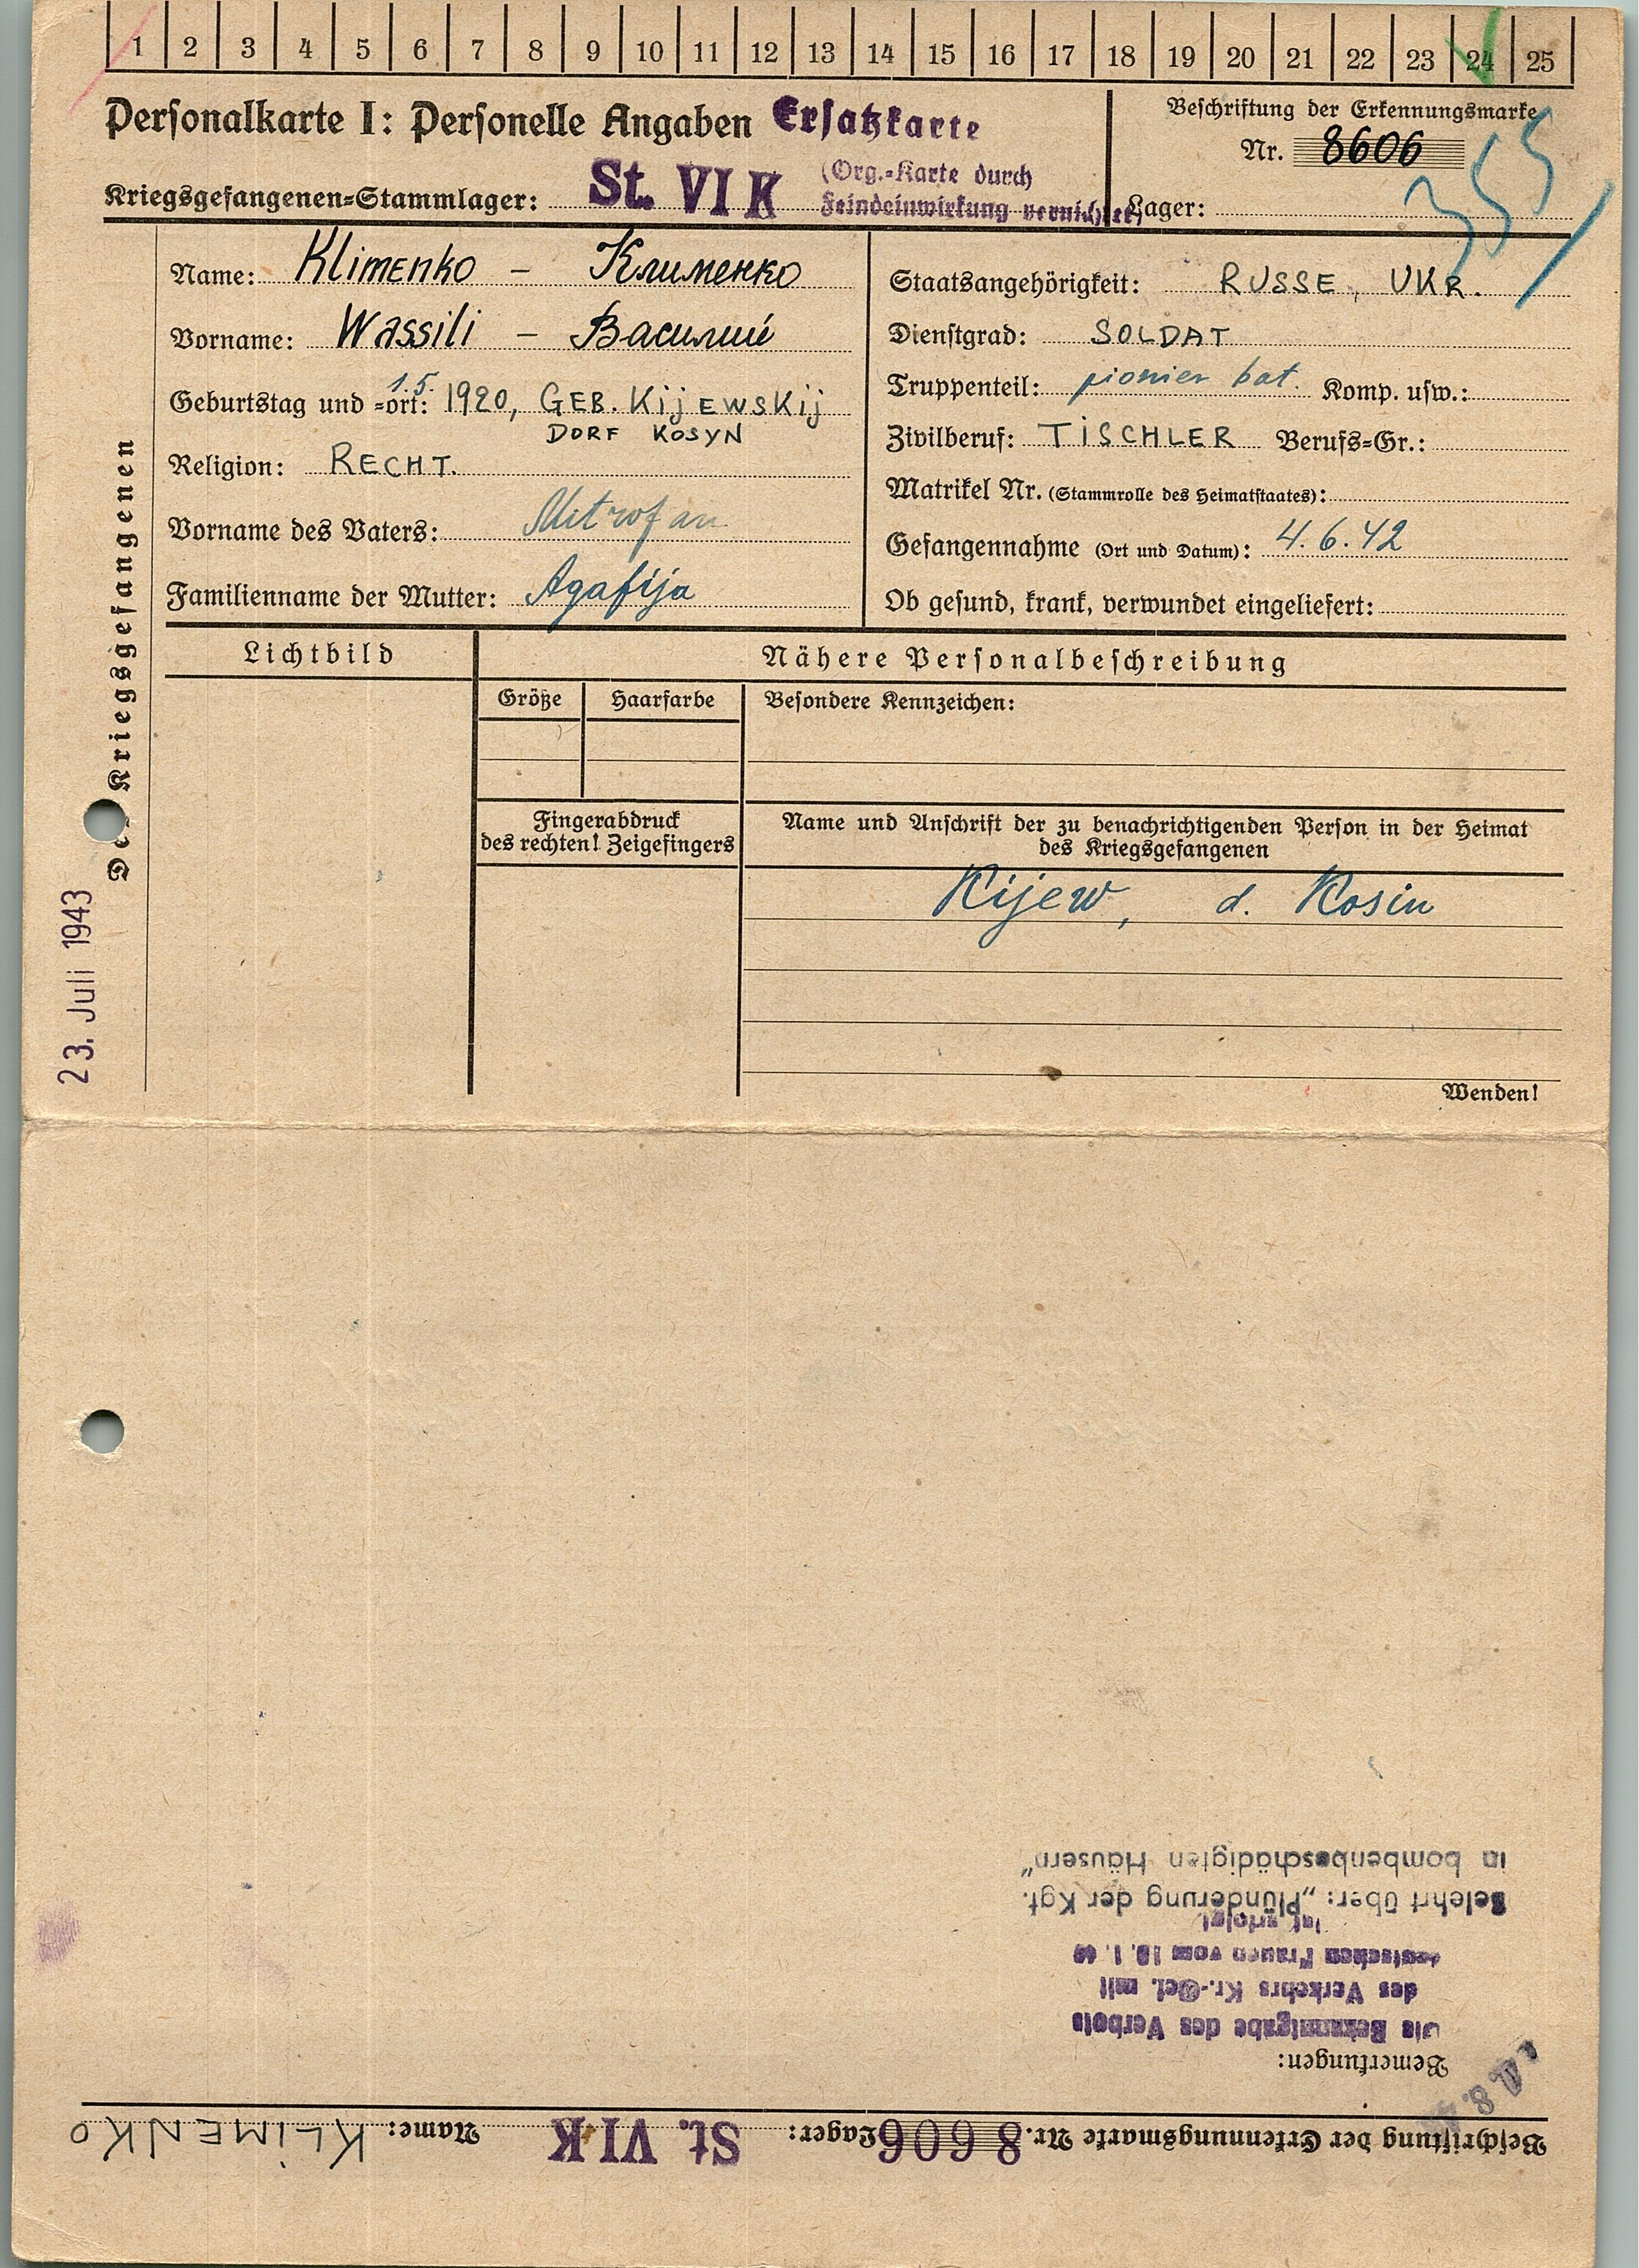 1 2 3 4 5 6 7 8 9 10 11 12 13 14 15 16 17 18 19 20 21 22 23 24 25
Personalkarte I: Personelle Angaben Ersatzkarte
(Org.-Karte durch
Feindeinwirkung vernichtet)
Kriegsgefangenen-Stammlager: St. VI K
Beschriftung der Erkennungsmarke
Nr. 8606
Lager:
355
Des Kriegsgefangenen
23. Juli 1943
Name: Klimenko – Клименко
Vorname: Wassili – Василий
Geburtstag und -ort: 1.5. 1920, GEB. KijEWSKij
DORF KOSYN
Religion: RECHT.
Vorname des Vaters: Mitrofan
Familienname der Mutter: Agafija
Staatsangehörigkeit: RUSSE, UKR.
Dienstgrad: SOLDAT
Truppenteil: pionier bat. Komp. usw.:
Zivilberuf: TiSCHLER Berufs-Gr.:
Matrikel Nr. (Stammrolle des Heimatstaates):
Gefangennahme (Ort und Datum): 4.6.42
Ob gesund, krank, verwundet eingeliefert:
Lichtbild
Nähere Personalbeschreibung
Größe Haarfarbe Besondere Kennzeichen:
Fingerabdruck
des rechten! Zeigefingers
Name und Anschrift der zu benachrichtigenden Person in der Heimat
des Kriegsgefangenen
Kijew, d. Kosin
Wenden!
Beschriftung der Erkennungsmarke Nr. 8606 Lager: St. VI K Name: KLiMENKO
Bemerkungen:
Die Bekanntgabe des Verbots
des Verkehrs Kr.-Gef. mit
deutschen Frauen vom
ist erfolgt
Belehrt über: „Plünderung der Kgf.
in bombenbeschädigten Häusern"